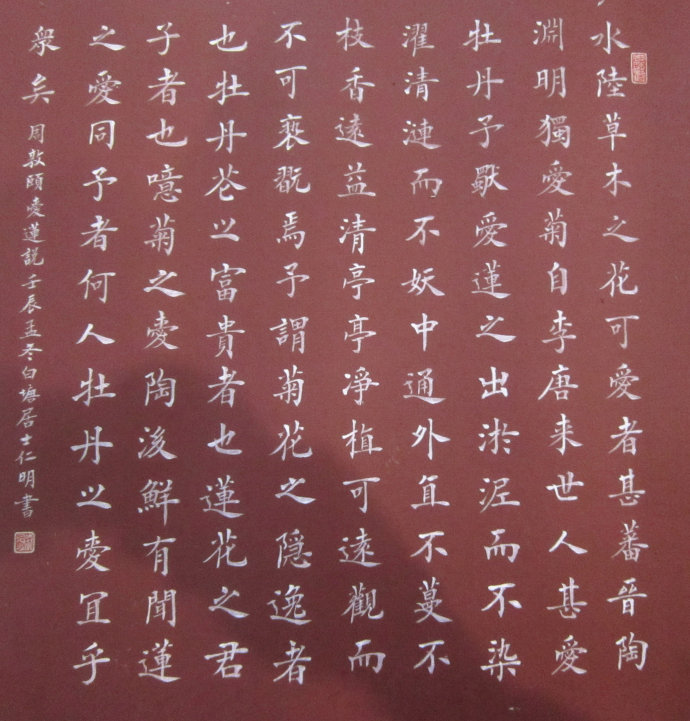 水陸草木之花可愛者甚蕃晉陶
淵明獨愛菊自李唐来世人甚愛
牡丹予愛蓮之出淤泥而不染
濯清漣而不妖中通外直不蔓不
枝香遠益清亭亭凈植可遠觀而
不可褻翫焉予謂菊花之隠逸者
也牡丹花之富貴者也蓮花之君
子者也噫菊之愛陶後鮮有聞蓮
之愛同予者何人牡丹之愛宜乎
衆矣
周敦頤愛蓮説壬辰孟冬白塘居士仁明書